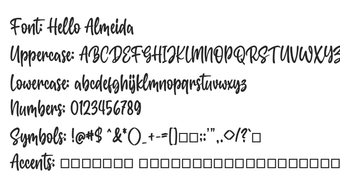 Font: Hello Almeida
Uppercase: ABCDEFGHIJKLMNOPQRSTUVWXYZ
Lowercase: abcdefghijklmnopqrstuvwxyz
Numbers: 0123456789
Symbols: !@#$ ^&*()_+-=[]□□::'",.<>/?`□
Accents: □□□□□□□ □□□□□□□□□□□□□□□□□□□□